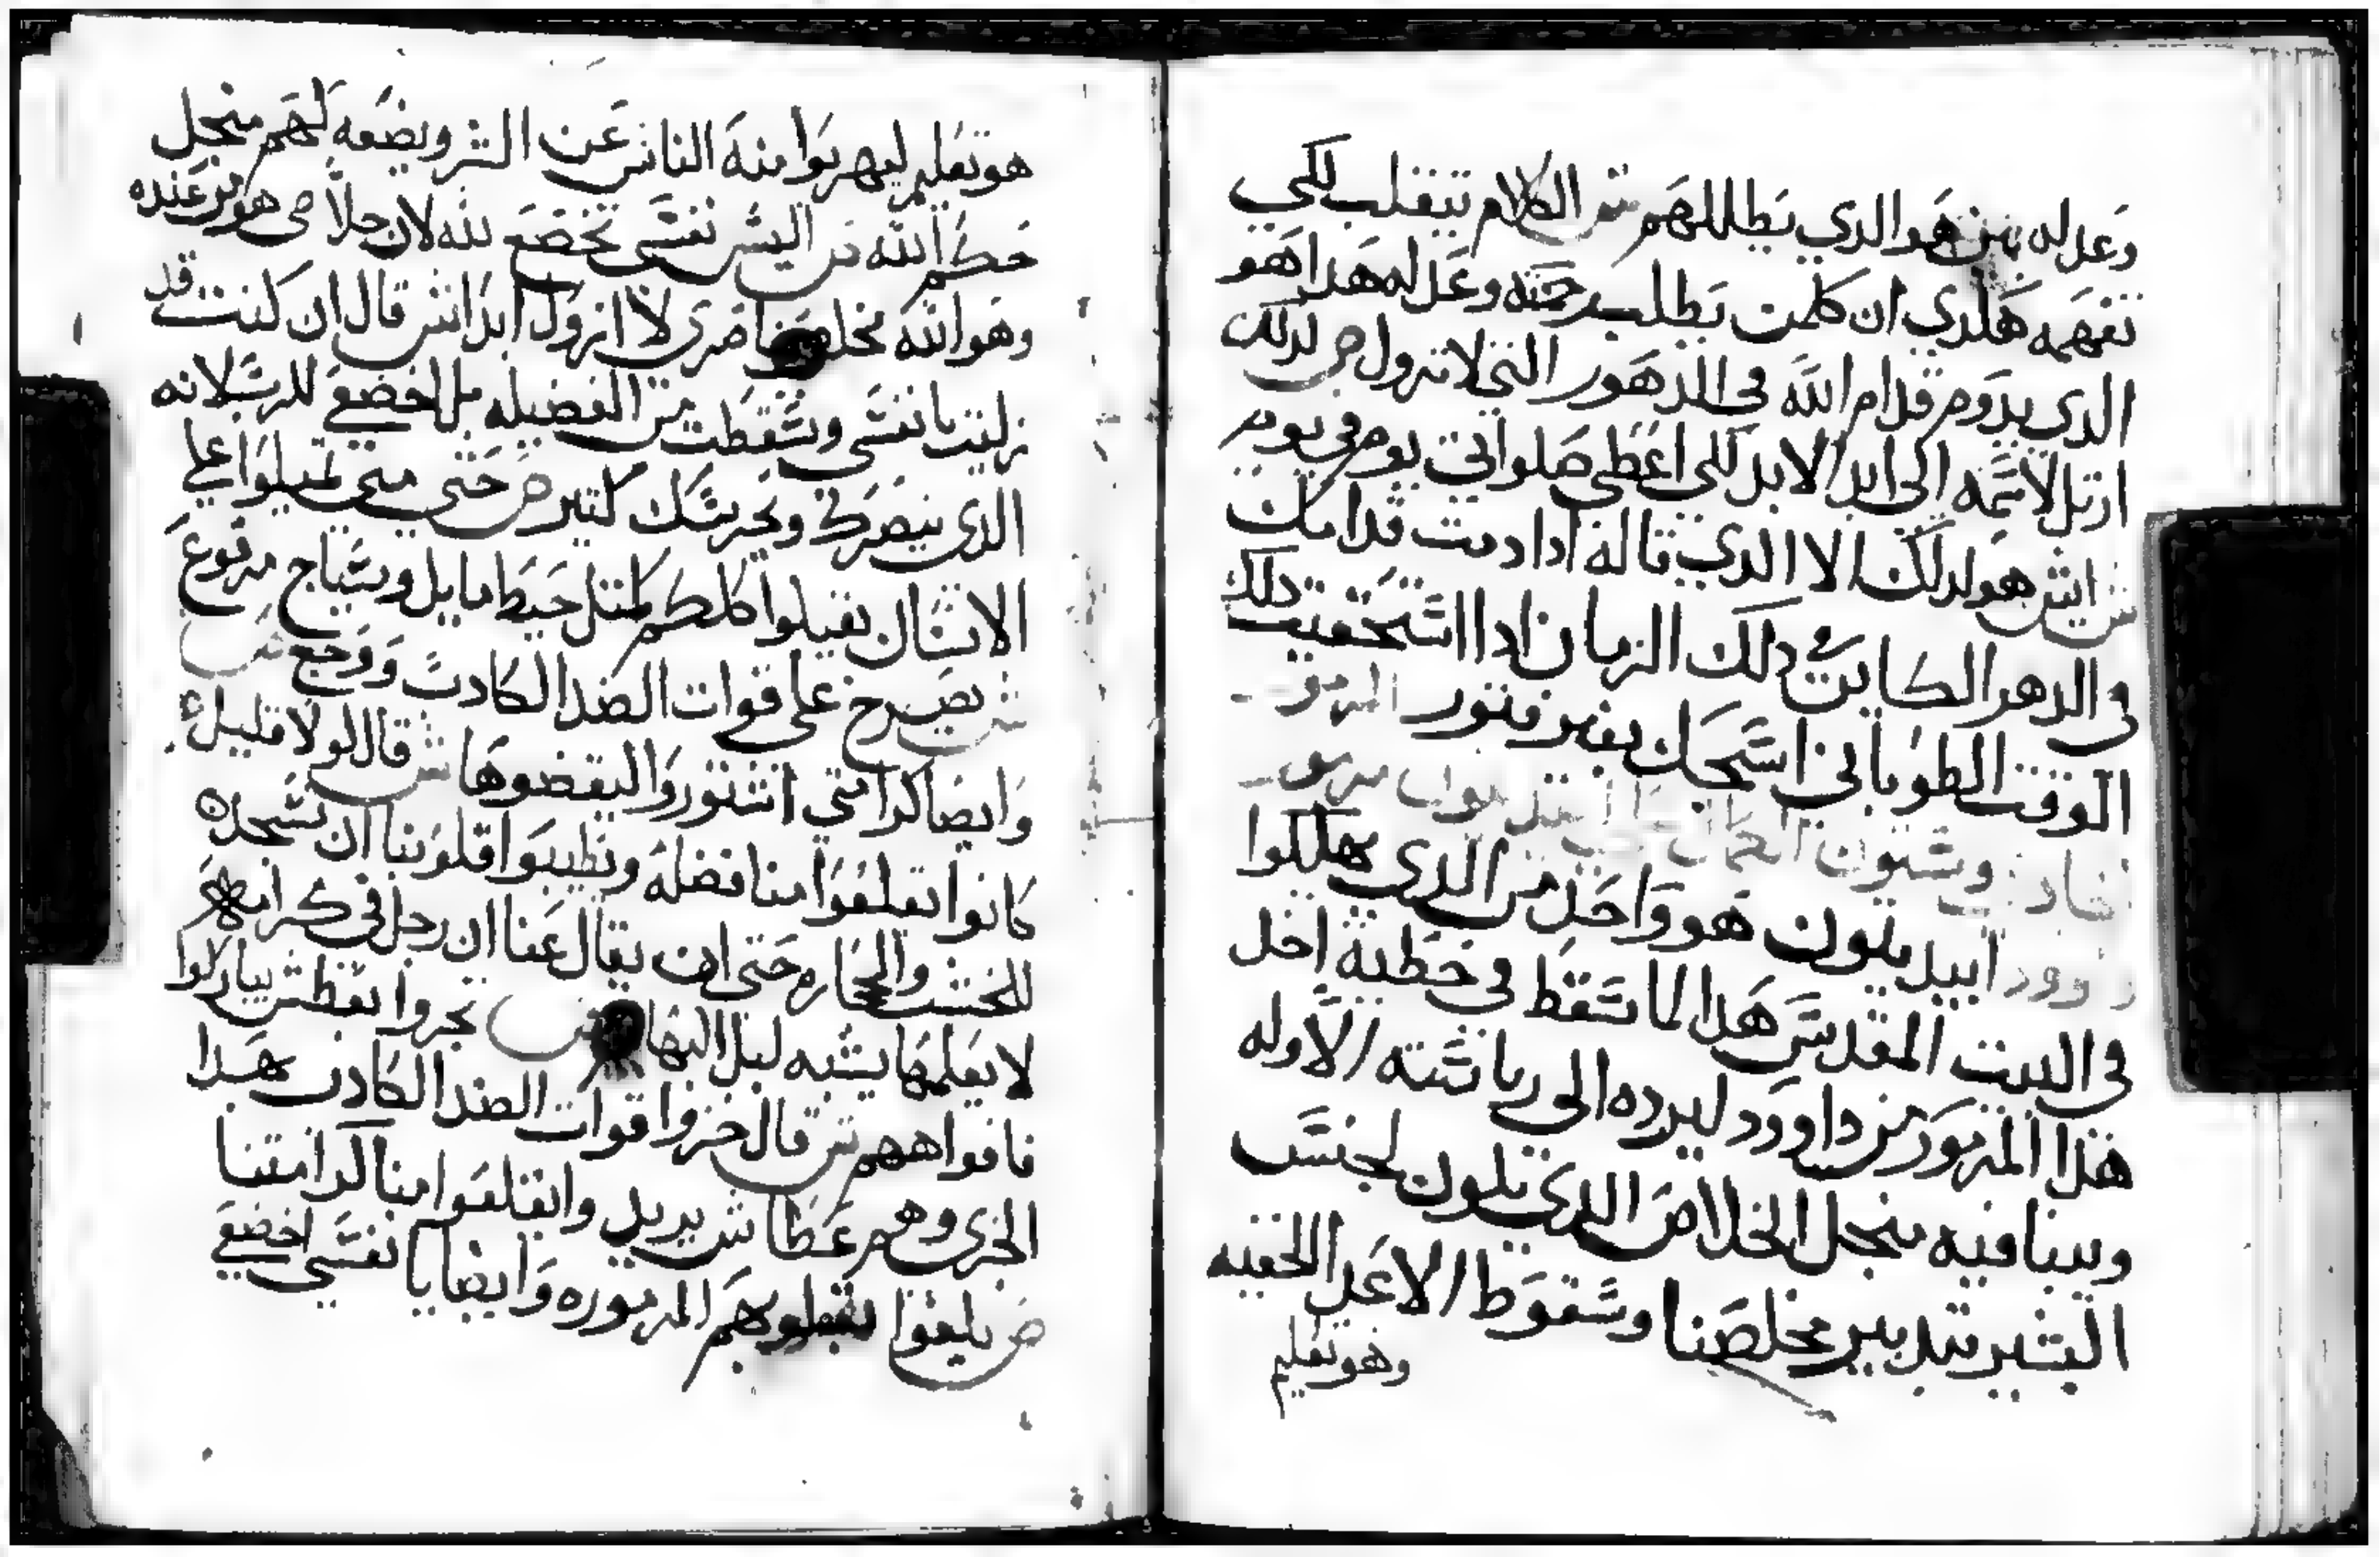 وعدله من هو الدي يطلبهم ش الكلام تيقلب لكي
نفهمه هكدي ان كلمن يطلب رحمته وعدله هدا هو
الدي يدوم قدام الله في الدهور التي لا تزول ص لدلك
ارتل لاسمه الى ابد الابد لكي اعطي صلواتي يوم في يوم
ش ايش هو لدلك الا الدي قاله ادا دمت قدامك
في الدهر الكاين في دلك الزمان ادا استحقيت دلك
الوقت الطوباني اسبحك بغير فتور المزمور
وستون
داوود ابيديتون هو واحد من الدي هللوا
في البيت المقدس هدا لما سقط في خطية اخد
هدا المزمور من داوود ليرده الى رياسته الاوله
وبينا فيه منجل الخلاص الدي يكون لجنس
البشر بتدبير مخلصنا وسقوط الاعدا الخفيه
وهو تعليم
هو تعليم ليهربوا منه الناس عن الشر ويضعه لهم منجل
حكم الله ص اليس نفسي تخضع لله لان خلاصي هو من عنده
وهو الله مخلصي ناصري لا ازول ابدا ش قال ان كنت قد
زليت يا نفسي وسقطت من الفضيله بل اخضعي للرب لانه
الدي ينصرك ويحرسك كتير ص حتى متى تميلوا على
الانسان تقبلوا كلكم كمتل حيط مايل وسياج مدفوع
ش يصرخ على قوات الضد الكادب ووجع ش
وايضا كرامتي اشتوروا ليقضوها ش قال لولا قليل
كانوا تقلعوا منا فضله وتطيبوا قلوبنا ان نسجده
للخشب والحجاره حتى ان يقال عنا ان رجل في كرامه
لا يعلمها يشبه لبدا البهايم ص تجروا بعطش يباركوا
بافواههم ش قال خزوا قوات الضد الكادب هدا
الخزى وهم عطاش يريد وايقلعوا منا كرامتنا
ص يلعنوا بقلوبهم المزموره وايضا يا نفسي اخضعي